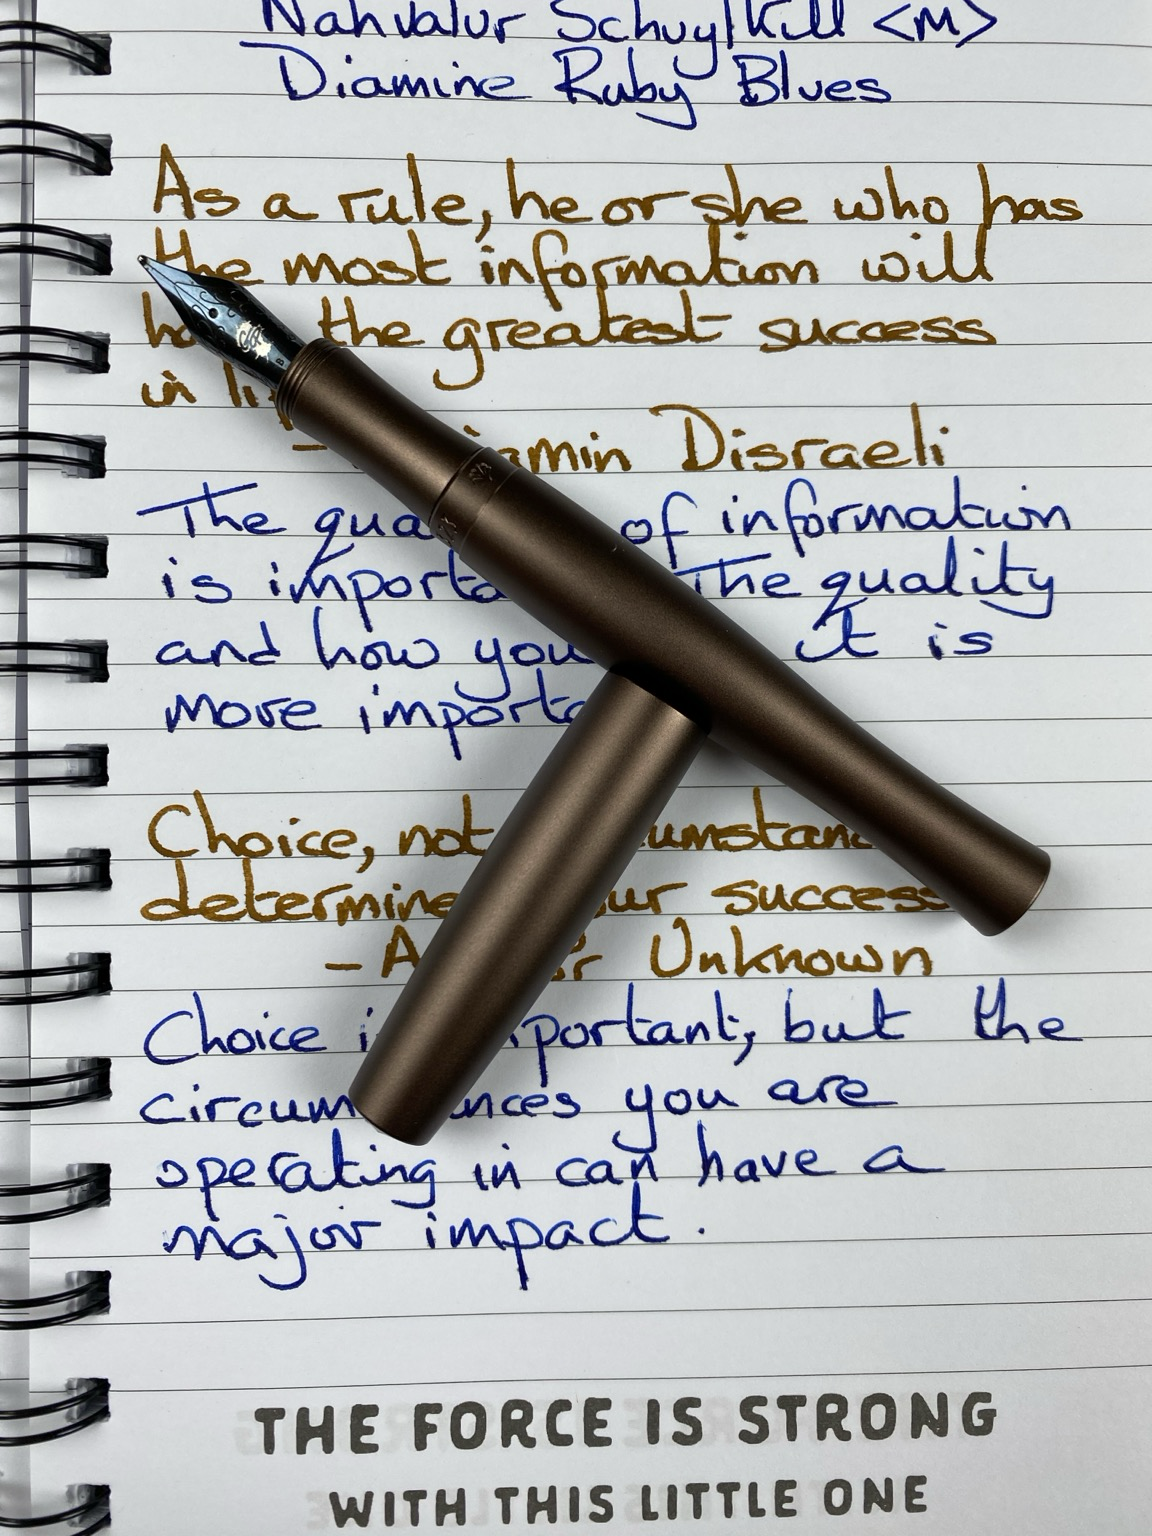 Nahvalur Schuylkill <M>
Diamine Ruby Blues
As a rule, he or she who has
the most information will
the greatest success
in
Disraeli
The of information
is The quality
and how you it is
more
Choice, not
success
- Unknown
Choice but the
you are
operating in can have a
major impact.
THE FORCE IS STRONG
WITH THIS LITTLE ONE